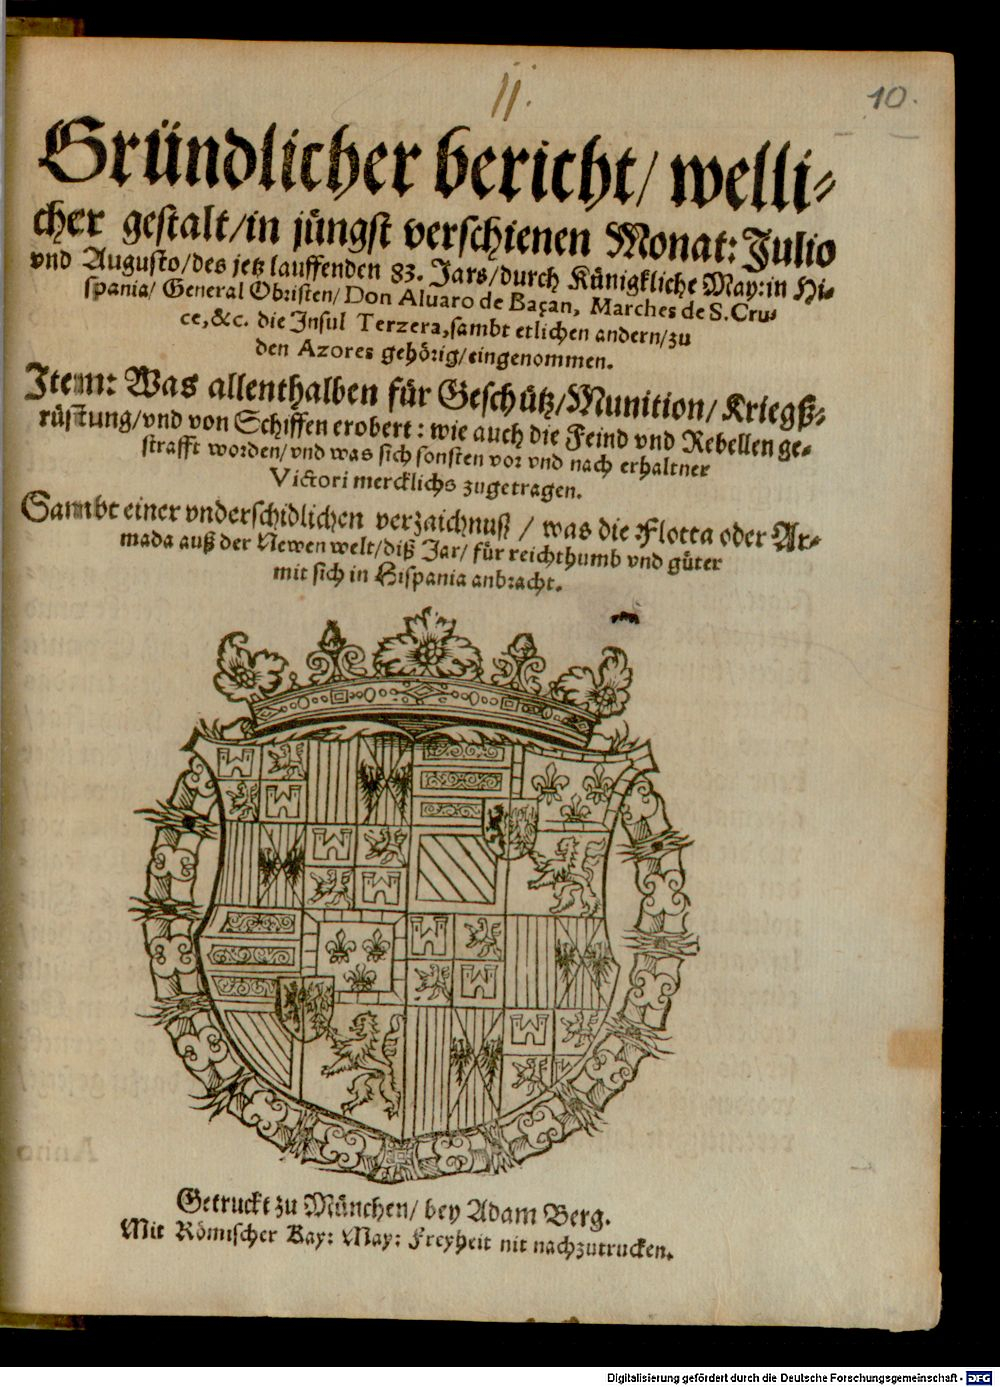 11.
10.
Gründlicher bericht/ welli-
cher gestalt/in jüngst verschienen Monat: Julio
vnd Augusto/des jetz lauffenden 83. Jars/durch Künigkliche May:in Hi-
spania/ General Obristen/ Don Aluaro de Baçan, Marches de S.Cru-
ce,&c. die Insul Terzera,sambt etlichen andern/zu
den Azores gehörig/eingenommen.
Item: Was allenthalben für Geschütz/Munition/ Kriegß-
rüstung/vnd von Schiffen erobert: wie auch die Feind vnd Rebellen ge-
strafft worden/vnd was sich sonsten vor vnd nach erhaltner
Victori mercklichs zugetragen.
Sambt einer vnderschidlichen verzaichnuß / was die Flotta oder Ar-
mada auß der Newen welt/diß Jar/ für reichthumb vnd güter
mit sich in Hispania anbracht.
Getruckt zu München/ bey Adam Berg.
Mit Römischer Kay: May: Freyheit nit nachzutrucken.
Digitalisierung gefördert durch die Deutsche Forschungsgemeinschaft - DFG